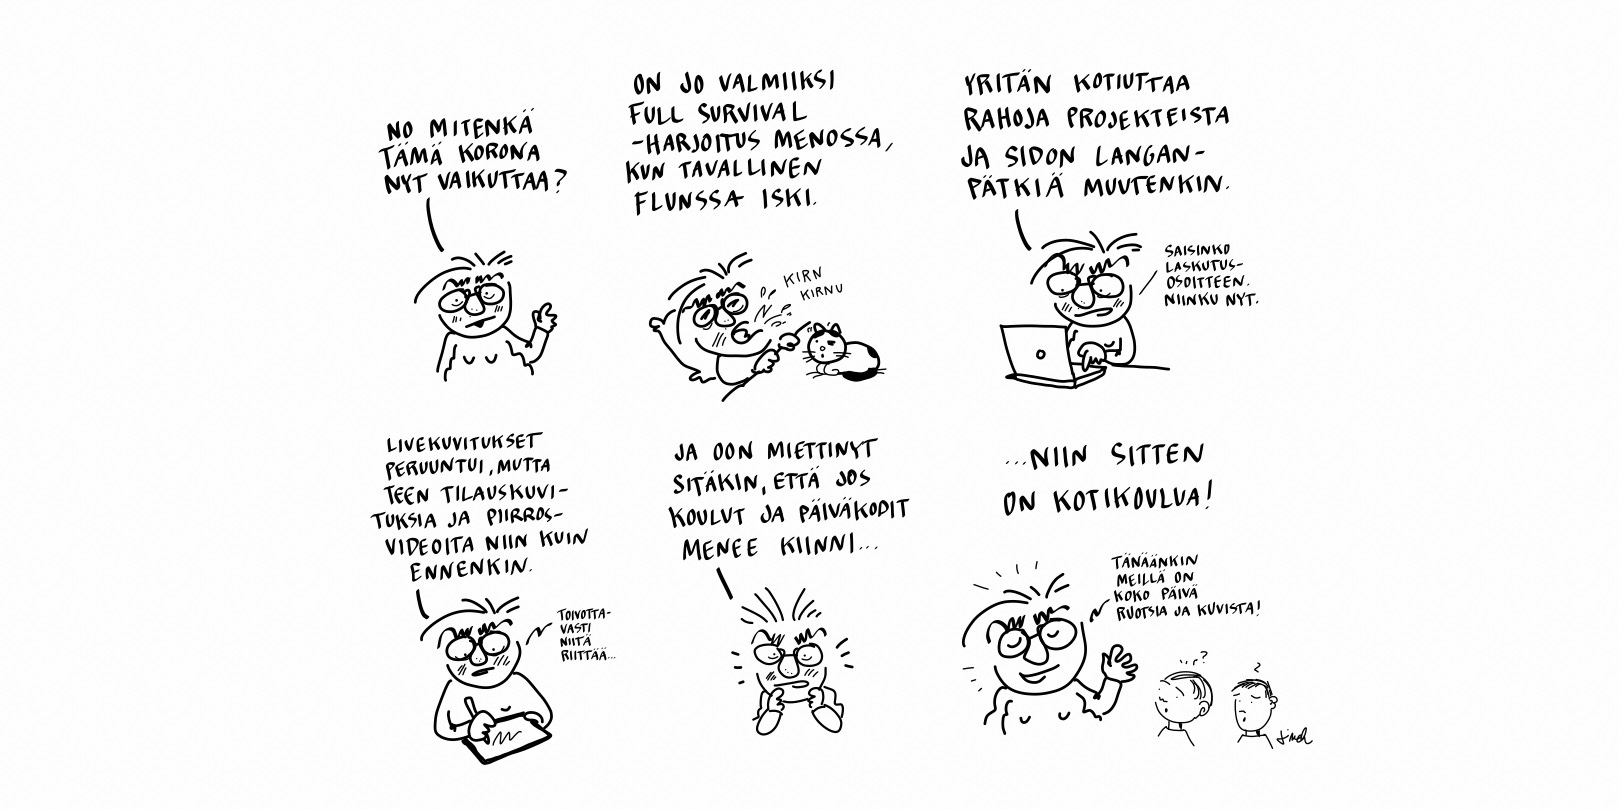 NO MITENKÄ
TÄMÄ KORONA
NYT VAIKUTTAA?
ON JO VALMIIKSI
FULL SURVIVAL
-HARJOITUS MENOSSA,
KUN TAVALLINEN
FLUNSSA ISKI.
KIRN
KIRNU
YRITÄN KOTIUTTAA
RAHOJA PROJEKTEISTA
JA SIDON LANGAN-
PÄTKIÄ MUUTENKIN.
SAISINKO
LASKUTUS-
OSOITTEEN.
NIINKU NYT.
LIVEKUVITUKSET
PERUUNTUI, MUTTA
TEEN TILAUSKUVI-
TUKSIA JA PIIRROS-
VIDEOITA NIIN KUIN
ENNENKIN.
TOIVOTTA-
VASTI
NIITÄ
RIITTÄÄ...
JA OON MIETTINYT
SITÄKIN, ETTÄ JOS
KOULUT JA PÄIVÄKODIT
MENEE KIINNI...
...NIIN SITTEN
ON KOTIKOULUA!
TÄNÄÄNKIN
MEILLÄ ON
KOKO PÄIVÄ
RUOTSIA JA KUVISTA!
?
?